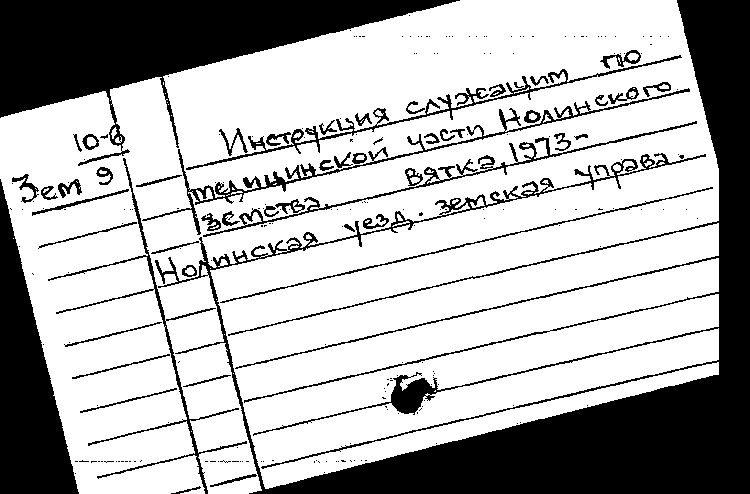 10-6
Зем 9
Инструкция служащим по
медицинской части Нолинского
земства. Вятка, 1973-
Нолинская уезд. земская управа.